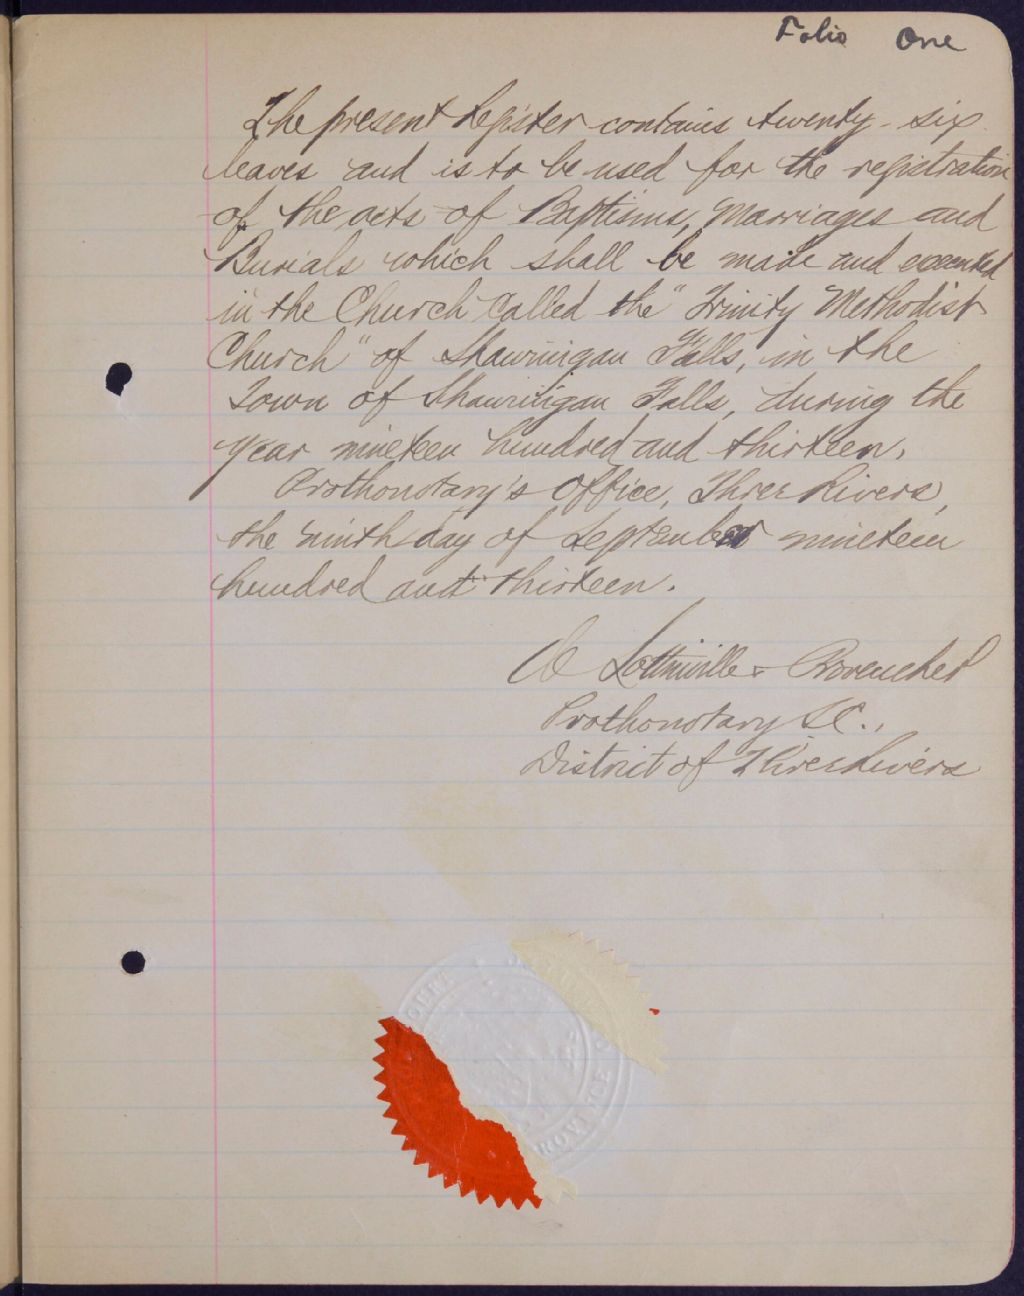 Folio One
The present Register contains twenty-six
leaves and is to be used for the registration
of the acts of Baptisms, Marriages and
Burials which shall be made and executed
in the Church called the "Trinity Methodist
Church" of Shawinigan Falls, in the
Town of Shawinigan Falls, during the
year nineteen hundred and thirteen.
Prothonotary's Office, Three Rivers,
the ninth day of September nineteen
hundred and thirteen.
Lottinville & Provencher
Prothonotary S.C.,
District of Three Rivers
PROVINCE